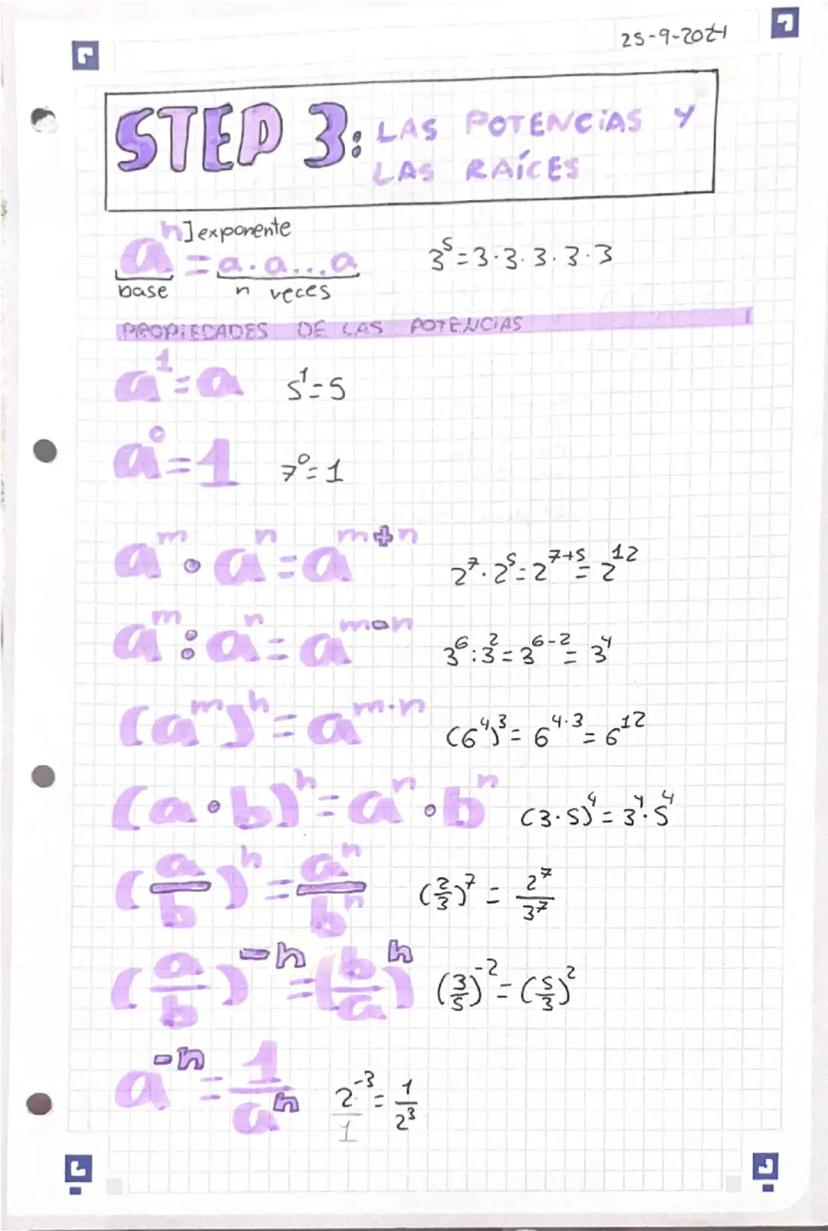 25-9-2024
STEP 3: LAS POTENCIAS Y
LAS RAÍCES
aⁿ ] exponente
aⁿ = a·a...a 3⁵=3·3·3·3·3
base n veces
PROPIEDADES DE LAS POTENCIAS
a¹=a 5¹=5
a⁰=1 7⁰=1
aᵐ · aⁿ = aᵐ⁺ⁿ 2⁷·2⁵=2⁷⁺⁵=2¹²
aᵐ : aⁿ = aᵐ⁻ⁿ 3⁶:3²=3⁶⁻²=3⁴
(aᵐ)ⁿ = aᵐ·ⁿ (6⁴)³=6⁴·³=6¹²
(a·b)ⁿ = aⁿ·bⁿ (3·5)⁴=3⁴·5⁴
(a/b)ⁿ = aⁿ/bⁿ (2/3)⁷ = 2⁷/3⁷
(a/b)⁻ⁿ = (b/a)ⁿ (3/5)⁻² = (5/3)²
a⁻ⁿ = 1/aⁿ 2⁻³/1 = 1/2³